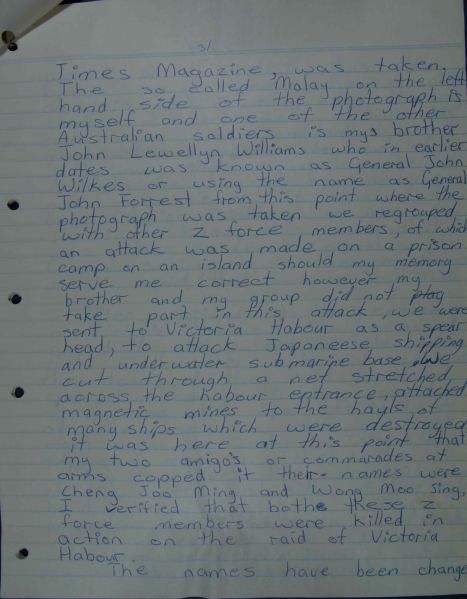 3/.
Times Magazine, was taken.
The so called Malay on the left
hand side of the photograph is
myself and one of the other
Australian soldiers is mys brother
John Lewellyn Williams who in earlier
dates was known as General John
Wilkes or using the name as General
John Forrest from this point where the
photograph was taken we regrouped,
with other Z force members, of which
an attack was made on a prison
camp on an island should my memory
serve me correct however my
brother and my group did not
take part in this attack, we were
sent to Victoria Habour as a spear
head, to attack Japaneese shipping
and underwater submarine base. We
cut through a net stretched,
across the habour entrance, attached
magnetic mines to the hayls of
many ships which were destroyed
it was here at this point that
my two amigo's or commarades at
arms copped it their names were
Cheng Joo Ming and Wong Moo Sing,
I verified that bothe these Z
force members were killed in
action on the raid of Victoria
Habour.
The names have been change